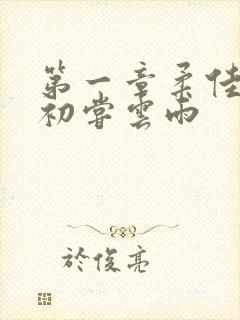 第一章柔佳
初嘗雲雨
於俊亮